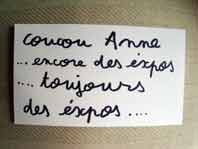 coucou Anna
... encore des éxpos
.... toujours
des éxpos ....